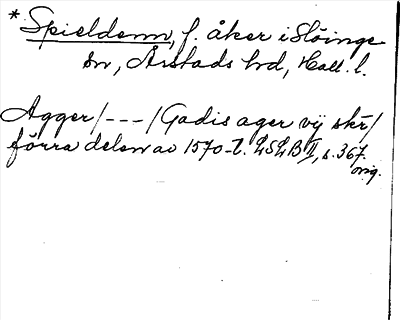 * Spieldenn, f. åker i Slöinge
sn, Årstads hd, Hall. l.
Agger /---/ Gadis ager vij skr/
förra delen av 1570-t. LSLB II, s. 367.
orig.